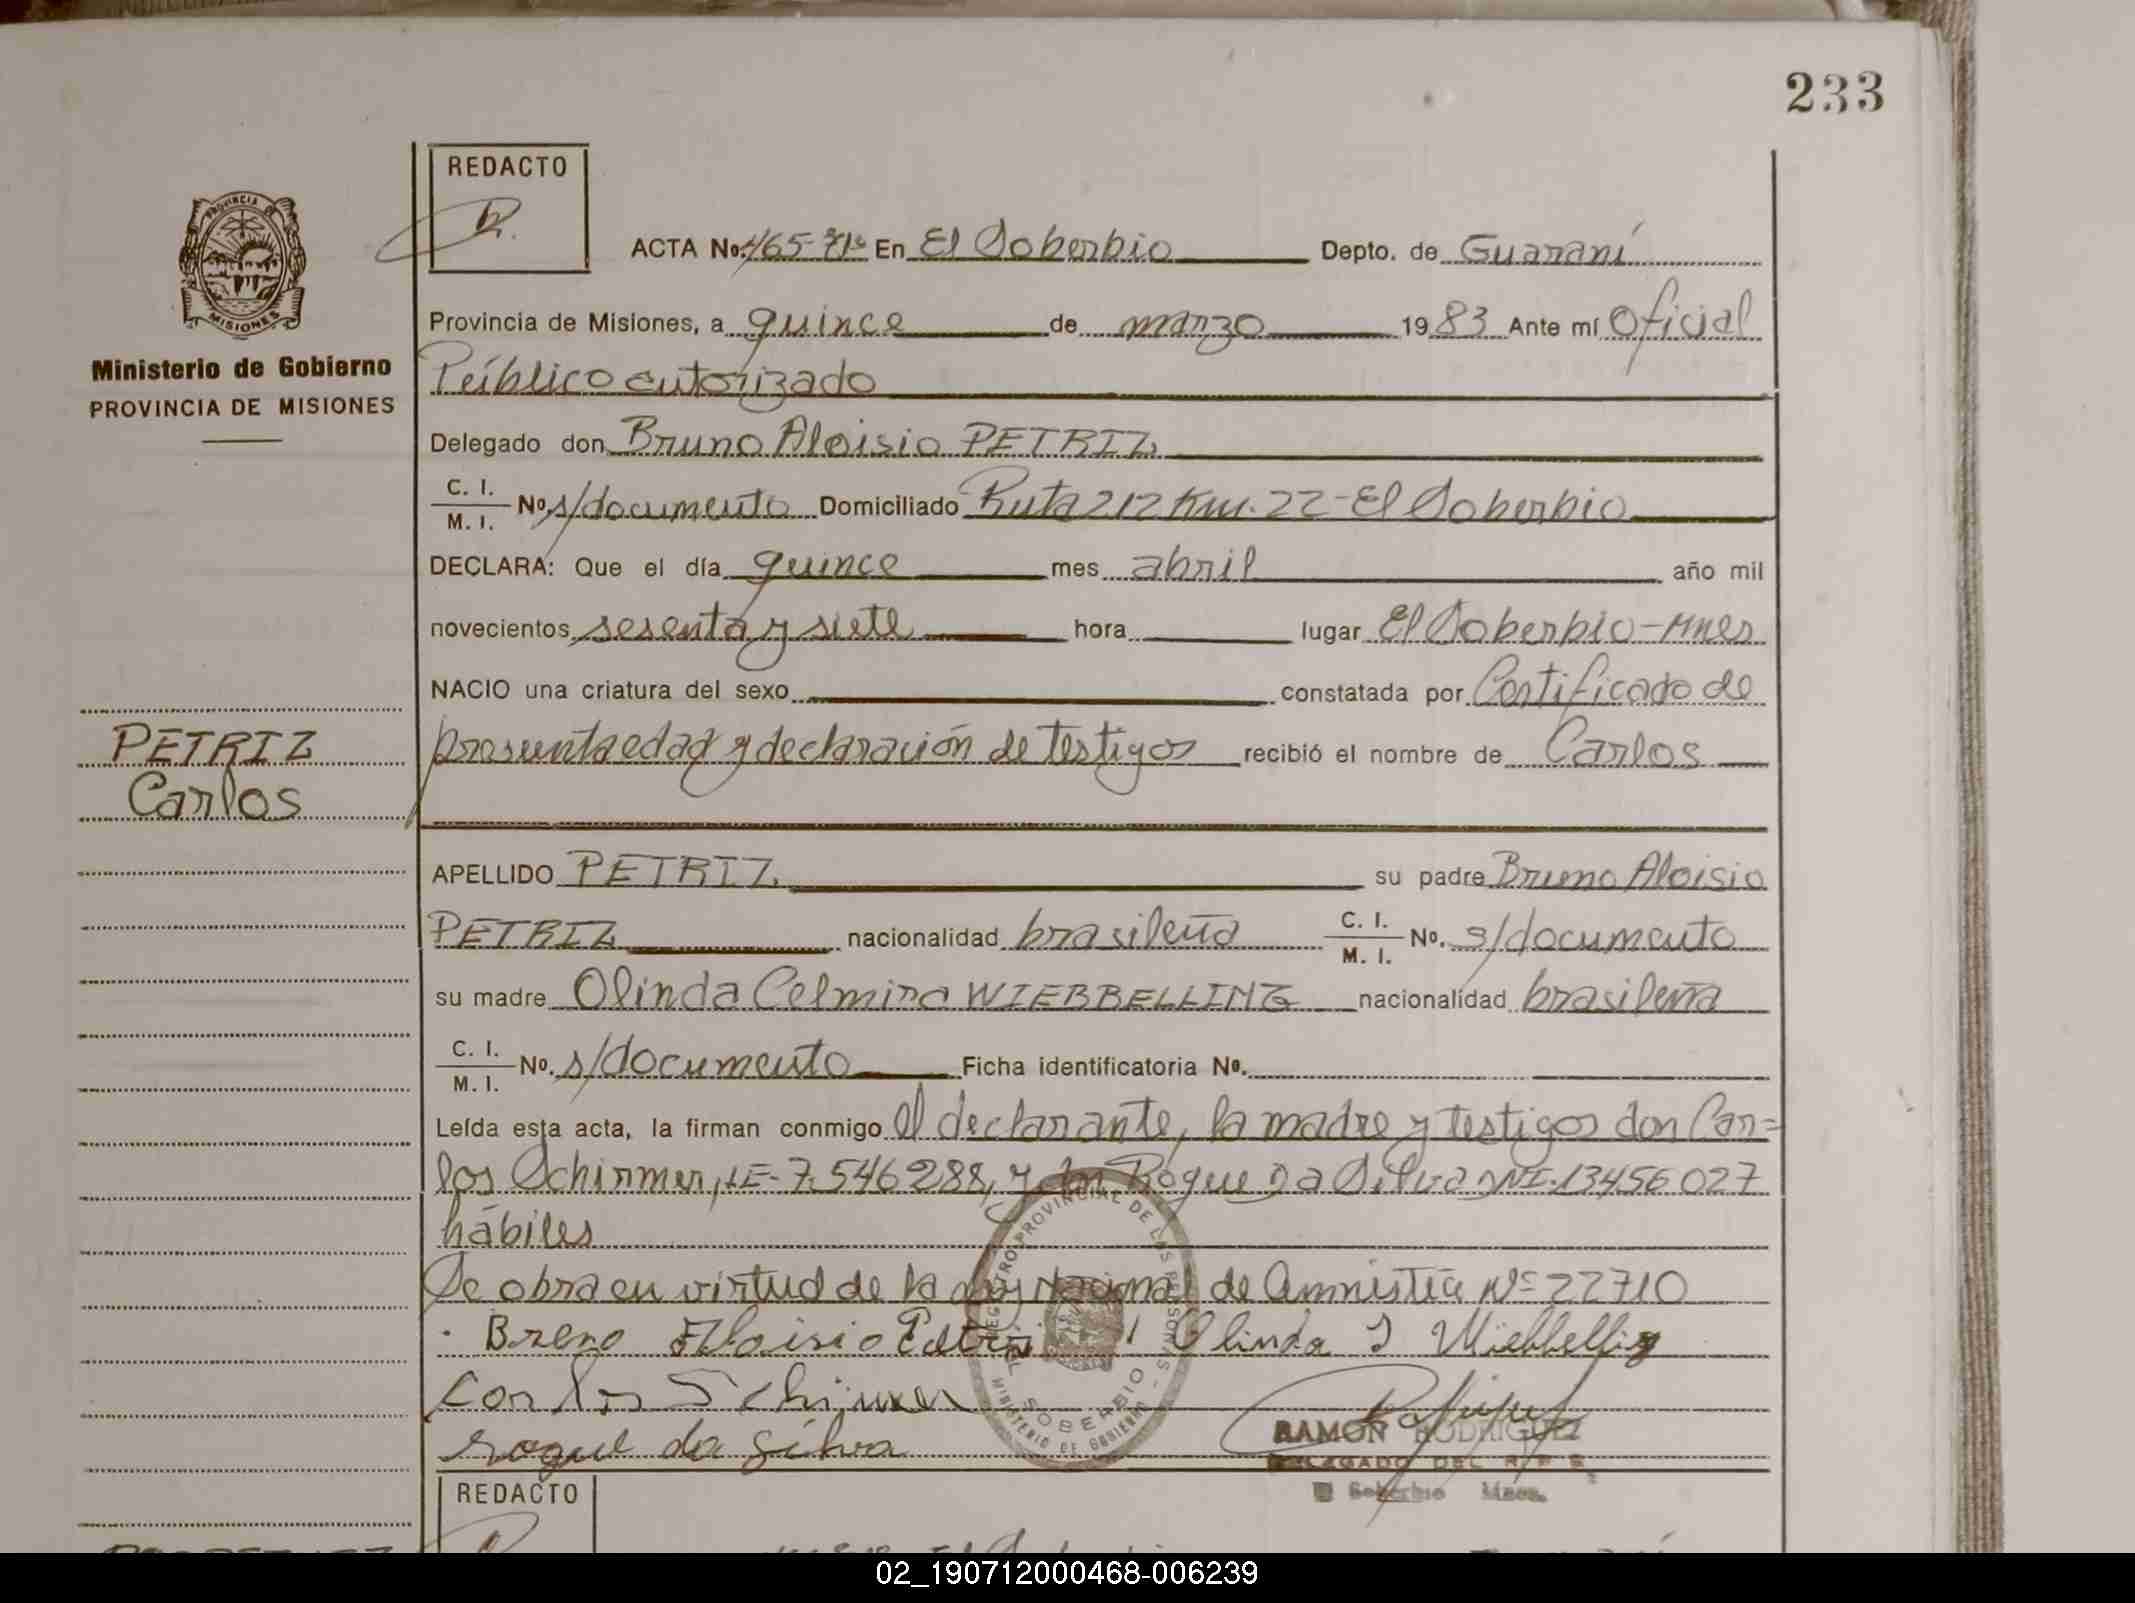 233
REDACTO
PROVINCIA DE
MISIONES
ACTA No. 465- En El Soberbio Depto. de Guaraní
Ministerio de Gobierno
PROVINCIA DE MISIONES
Provincia de Misiones, a quince de marzo 1983 Ante mí Oficial
Público autorizado
Delegado don Bruno Aloisio PETRIZ
C. I.
M. I. No. s/documento Domiciliado Ruta 212 Km. 22-El Soberbio
DECLARA: Que el día quince mes abril año mil
novecientos sesenta y siete hora lugar El Soberbio-Mnes
NACIO una criatura del sexo constatada por Certificado de
PETRIZ
Carlos
presunta edad y declaración de testigos recibió el nombre de Carlos
APELLIDO PETRIZ su padre Bruno Aloisio
PETRIZ nacionalidad brasileña C. I.
M. I. No. s/documento
su madre Olinda Celmira WIEBBELLING nacionalidad brasileña
C. I.
M. I. No. s/documento Ficha identificatoria No.
Leída esta acta, la firman conmigo el declarante, la madre y testigos don Car=
los Schirmer, LE-7.546288, y don Roque Da Silva DNI-13456027
hábiles
Se obra en virtud de la Ley Nacional de Amnistía Nº 22710
Breno Aloisio Petri Olinda Wiebbelling
Carlos Schirmer
roque da silva
REGISTRO PROVINCIAL DE LAS PERSONAS
EL SOBERBIO
MINISTERIO DE GOBIERNO
RAMON RODRIGUEZ
DELEGADO DEL R. P. P.
El Soberbio Mnes.
REDACTO
02_190712000468-006239